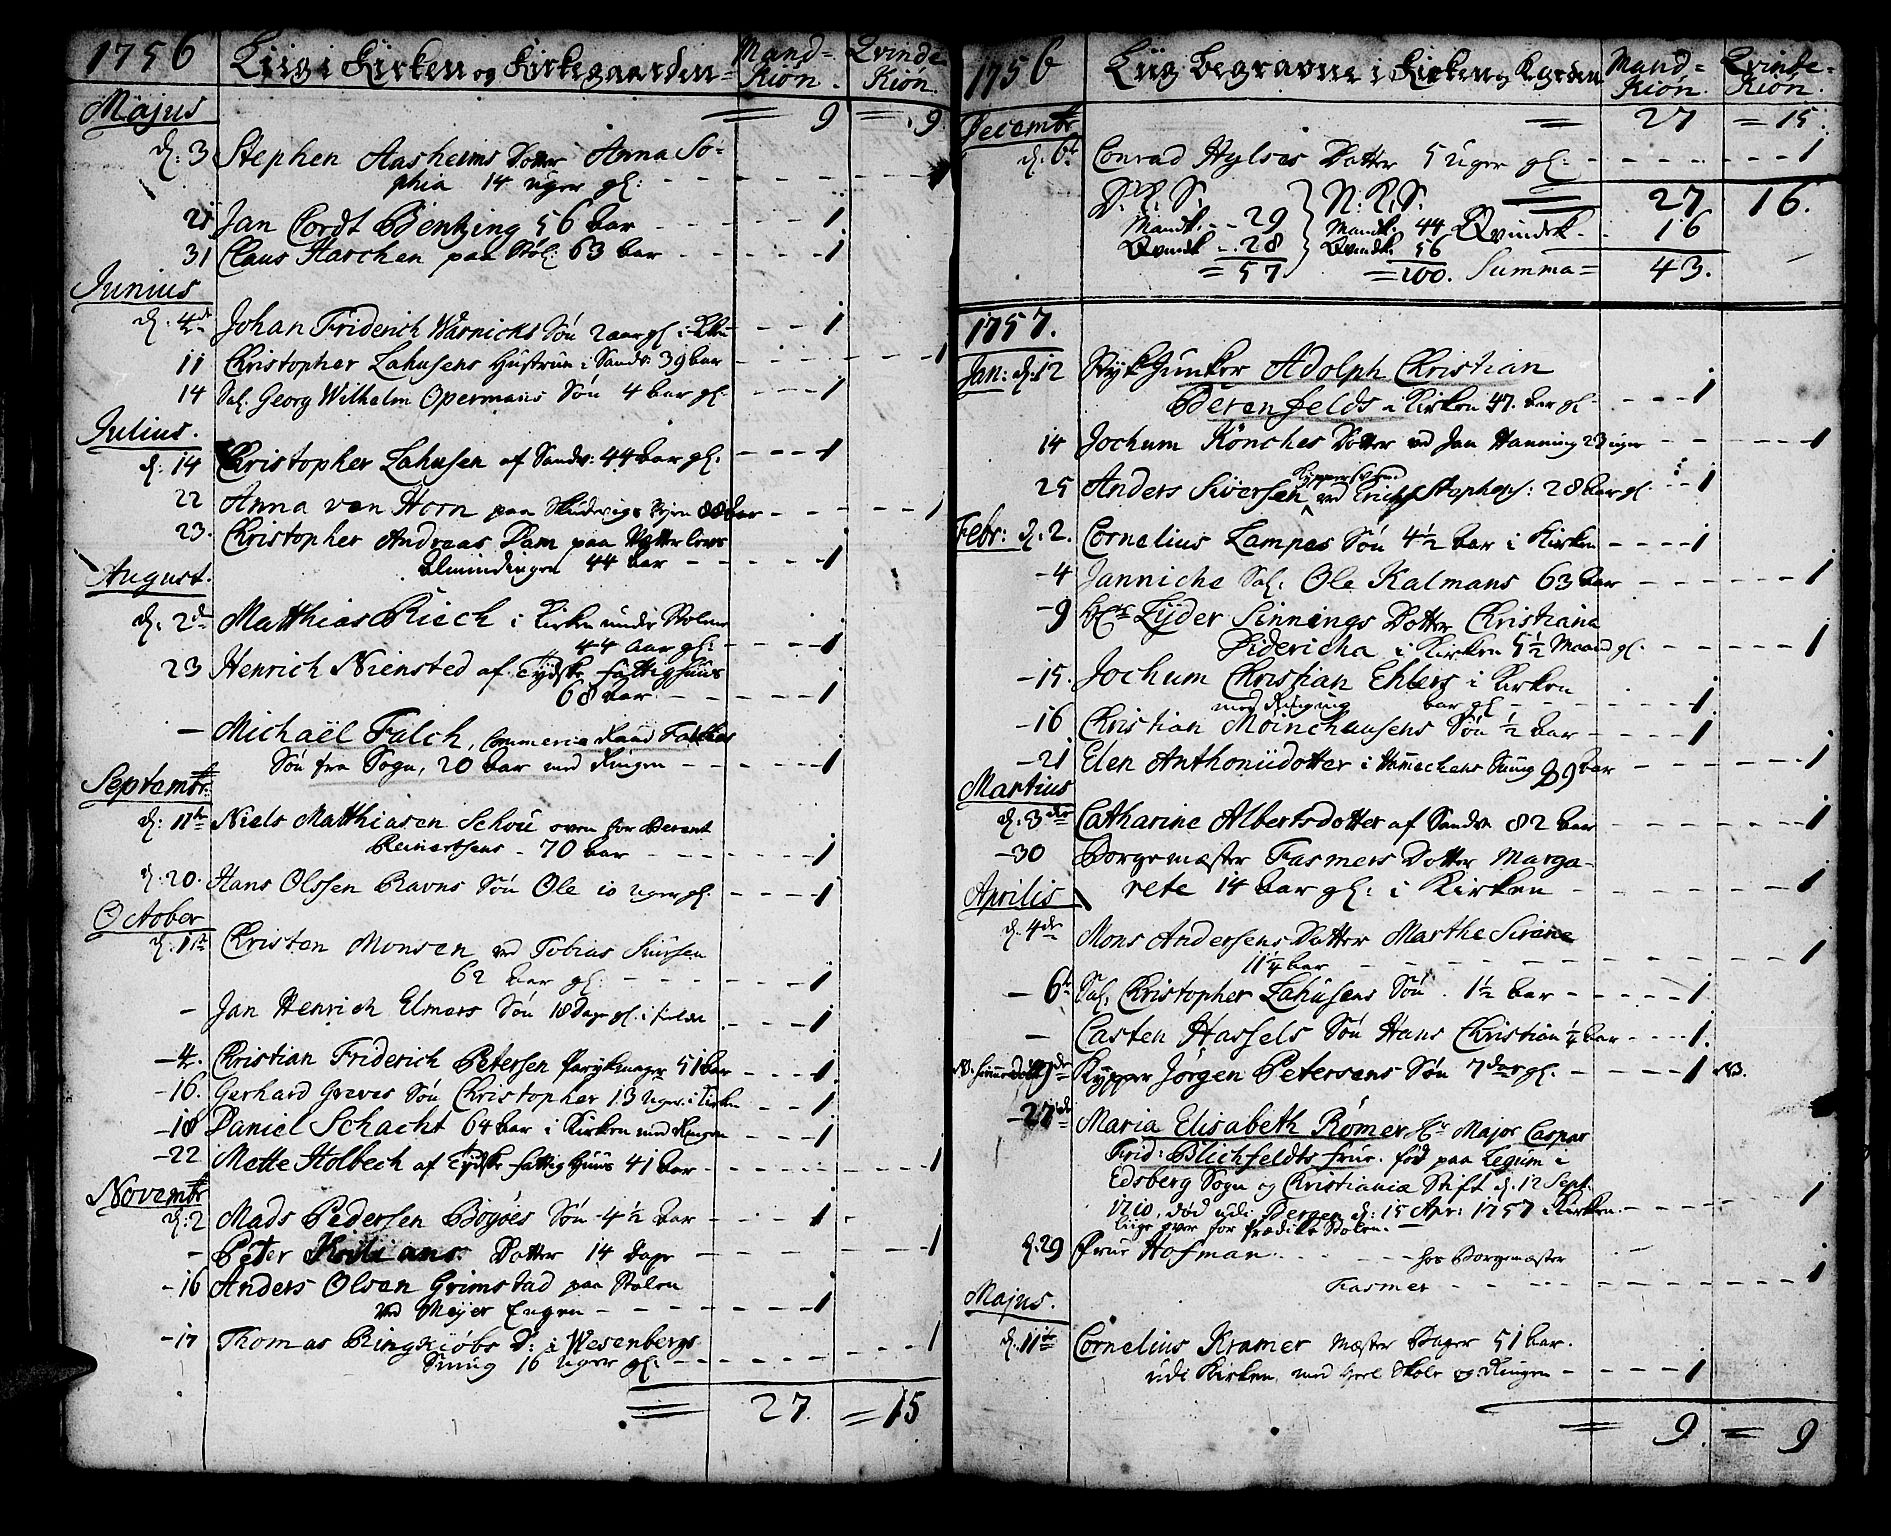 1756 Liig i Kirken og Kirkegaarden Mand= Kiön. Qvinde= Kiön.
Majus = 9 = 9
d: 3 Stephen Aasheims Dotter Anna So-
phia 14 uger gl: - - - 1
21 Jan Cordt Bentzing 56 aar - - - 1
31 Claus Harchen paa Støl: 63 aar - - - 1
Junius
d. 4de Johan Friderich Warnicks Søn 2 aar gl. i Kirk - - 1
11 Christopher Lahusens Hustrue i Sandv: 39 aar - - - 1
14 Sal. Georg Wilhelm Opermans Søn 4 aar gl. - - 1
Julius.
d: 14 Christopher Lahusen af Sandv: 44 aar gl. - - - 1
22 Anna van Horn paa 88 aar - - - 1
23. Christopher Andreas Dam paa
Almindingen 44 aar - - - 1
August.
d. 2den Matthias Riech i Kirken under Stolene
44 aar gl: - - - 1
23 Henrich Niensted af Tydske fattighuus
68 aar. - - - 1
- Michaël Falch, Commercie Raad Falches
Søn fra Sogn, 20 aar med Ringen - - - 1
Septembr.
d: 11te Niels Matthiasen Schou oven for Berent
Reinertsens - 70 aar - - - 1
d: 20. Hans Olssen Ravns Søn Ole 10 uger gl: - - - 1
October
d. 1te Christen Monsen ved Tobias
62 aar gl: - - - 1
- Jan Henrich Elmers Søn 18 Dage gl. i - - - 1
-4. Christian Friderich Petersen Parykmager 51 aar - - - 1
-16. Gerhard Greves Søn Christopher 13 uger. i Kirken - - 1
-18 Daniel Schacht 64 aar i Kirken med Ringen - - - 1
-22 Mette Holbech af Tydske fattig Huus 41 aar - - - 1
Novembr
d: 2 Mads Pedersen Bogøes Søn 4 1/2 aar - - - 1
- Peter Dotter 14 Dage - - - 1
-16 Anders Olsen Grimstad paa Stølen
ved Meyer Engen - - - 1
-17 Thomas Ringkiöbs D: i Wesenbergs
Smug 16 uger gl. - - - 1
27. = 15
1756 Liig begravne i Kirken og Kgrden Mand= Kiön. Qvinde= Kiön.
Decembr = 27 = 15.
d. 6te Conrad Hylses Dotter 5 uger gl. - - - 1
D. K. S. N: K. S. 27 16.
Mandk. - - 29 Mandk. 44 Qvindek - - 16
Qvindk - 28 Qvindk. 56
= 57 = 100. Summa = 43.
1757.
Jan: d. 12 Stykjunker Adolph Christian
Berenfelds i Kirken 47. aar gl - - - 1
14 Jochum Könches Dotter ved Jan Hanning 23 uger - - - 1
25 Anders Siversen ved Erich Stephens: 28 aar gl. - - 1
Febr: d. 2. Cornelius Lampes Søn 4 1/2 aar i Kirken - - - 1
-4 Janniche Sal. Ole Kalmans 63 aar - - - 1
-9 Hr. Lyder Sinnings Dotter Christiana
Didericha i Kirken 5 1/2 Maaned gl. - - - 1
-15. Jochum Christian Ehlers i Kirken
med Ringning aar gl - - - 1.
-16 Christian Möinchausens Søn 1/2 aar - - - 1
-21 Elen Anthoniidotter i Smug 89 aar - - - 1
Martius
d. 3die Catharine Albertsdotter af Sandv. 82 aar - - - 1
-30 Borgemæster Fasmers Dotter Marga-
rete 14 aar gl: i Kirken - - - 1
Aprilis
d. 4de Mons Andersens Dotter Marthe Sirene
11 1/4 aar - - - 1
- 6te Sal. Christopher Lahusens Søn . 1 1/2 aar - - - 1.
- Casten Hassels Søn Hans Christian 1/4 aar - - - 1.
Kypper Jørgen Petersens Søn 7 dar gl. - - - 1
-27de Maria Elisabeth Römer Hr. Major Caspar
Frid: Blichfeldts frue. fød paa Legum i
Edsberg Sogn og Christiania Stift d. 12 Sept.
1710, død udi Bergen d: 15 Apr: 1757 i Kirken. - - - 1
liige over for Prædike Stolen.
d. 29 Frue Hofman. - - - hos Borgemæster
Fasmer - - - 1
Majus.
d. 11te Cornelius Kramer Mæster Bager 51 aar.
udi Kirken, med heel Skole og Ringen - - - 1
= 9. = 9